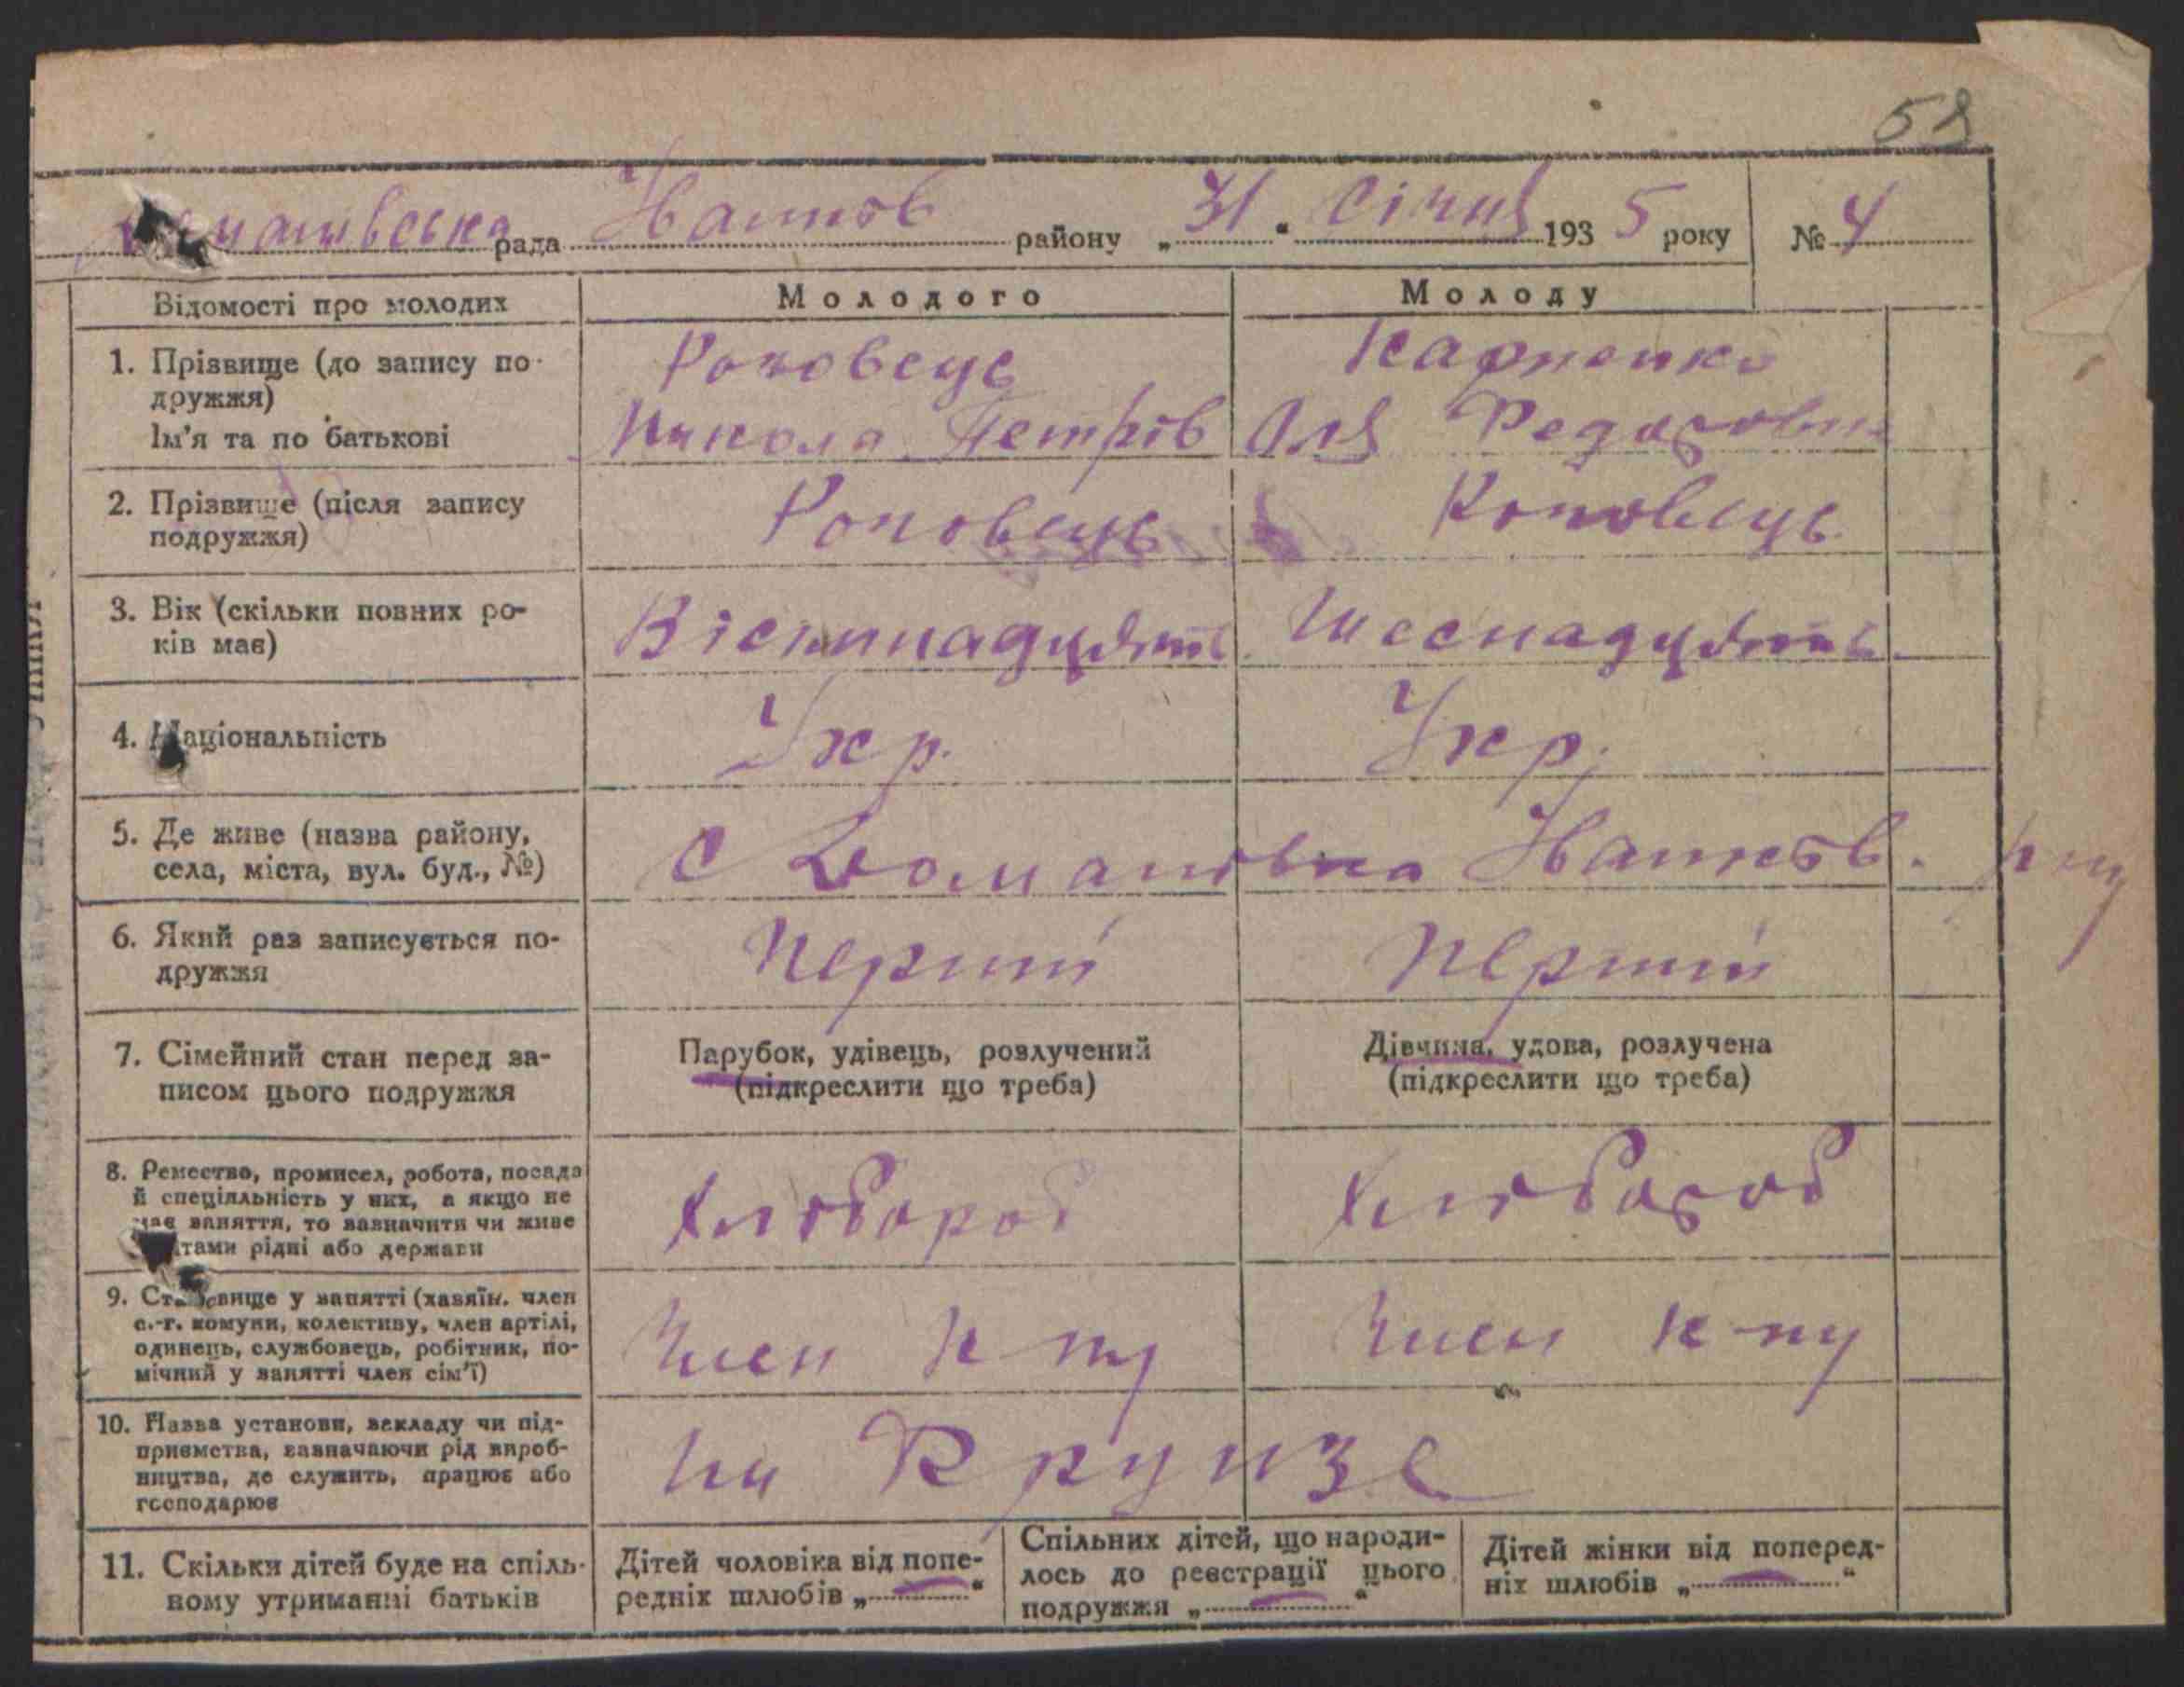 58
рада районну „31“ Січня 1935 року № 4
Відомості про молодих Молодого Молоду
1. Прізвище (до запису по-
дружжя)
Карпенко
Ім'я та по батькові
Микола Петров Оля
2. Прізвище (після запису
подружжя)
3. Вік (скільки повних ро-
ків має)
Вісімнадцять Шеснадцять
4. Національність
Укр. Укр.
5. Де живе (назва району,
села, міста, вул. буд., №)
с Доманівка
6. Який раз записується по-
дружжя
Перший Перший
7. Сімейний стан перед за-
писом цього подружжя
Парубок, удівець, розлучений
(підкреслити що треба)
Дівчина, удова, розлучена
(підкреслити що треба)
8. Ремество, промисел, робота, посада
й спеціяльність у них, а якщо не
має заняття, то зазначити чи живе
рідні або держави
Хлібороб Хлібороб
9. Становище у занятті (хазяїн, член
с.-г. комуни, колективу, член артілі,
одинець, службовець, робітник, по-
мічний у занятті член сім'ї)
Член к-пу Член к-пу
10. Назва установи, закладу чи під-
приємства, зазначаючи рід вироб-
ництва, де служить, працює або
господарює
Фрунзе
11. Скільки дітей буде на спіль-
ному утриманні батьків
Дітей чоловіка від попе-
редніх шлюбів „—“
Спільних дітей, що народи-
лось до реєстрації цього
подружжя „—“
Дітей жінки від поперед-
ніх шлюбів „—“